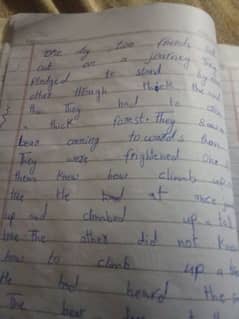 One day two friends set
out on a journey. They
pledged to stand by each
other though thick and
thin They had to
a thick forest. They saw a
bear coming to wards them
They were frightened one
them know how climb up
He at once
up and climbed up a tall
The other did not know
how to climb up a
He had heard the
The bear to the